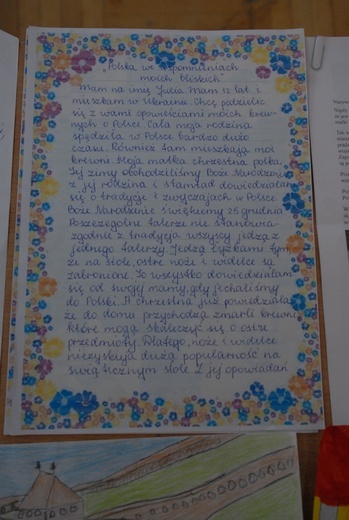 „Polska we wspomnieniach
moich bliskich"
Mam na imię Julia Mam 12 lat i
mieszkam w Ukrainie. Chcę podzielić
się z wami opowieściami moich krew-
nych o Polsce. Cała moja rodzina
spędziła w Polsce bardzo dużo
czasu. Również tam mieszkają moi
krewni. Moja matka chrzestna polka.
Jej zimy obchodziliśmy Boże Narodzenie
z jej rodziną i stamtąd dowiedziałam
się o tradycje i zwyczajach w Polsce.
Boże Narodzenie świętujemy 25 grudnia
Poszczególne talerze nie stanowią
zgodnie z tradycją wszyscy jedzą z
jednego talerzy Jedzą łyżkami tym,
że na stole, ostre noże i widelce są
zabronione. To wszystko dowiedziałam
się od swojej mamy, gdy jechaliśmy
do Polski. A chrzestna już powiedziała
że do domu przychodzą zmarli krewni
które mogą skaleczyć się o ostre
przedmioty. Dlatego, noże i widelce
niezyskują dużą popularność na
świątecznym stole. Z jej opowiadań